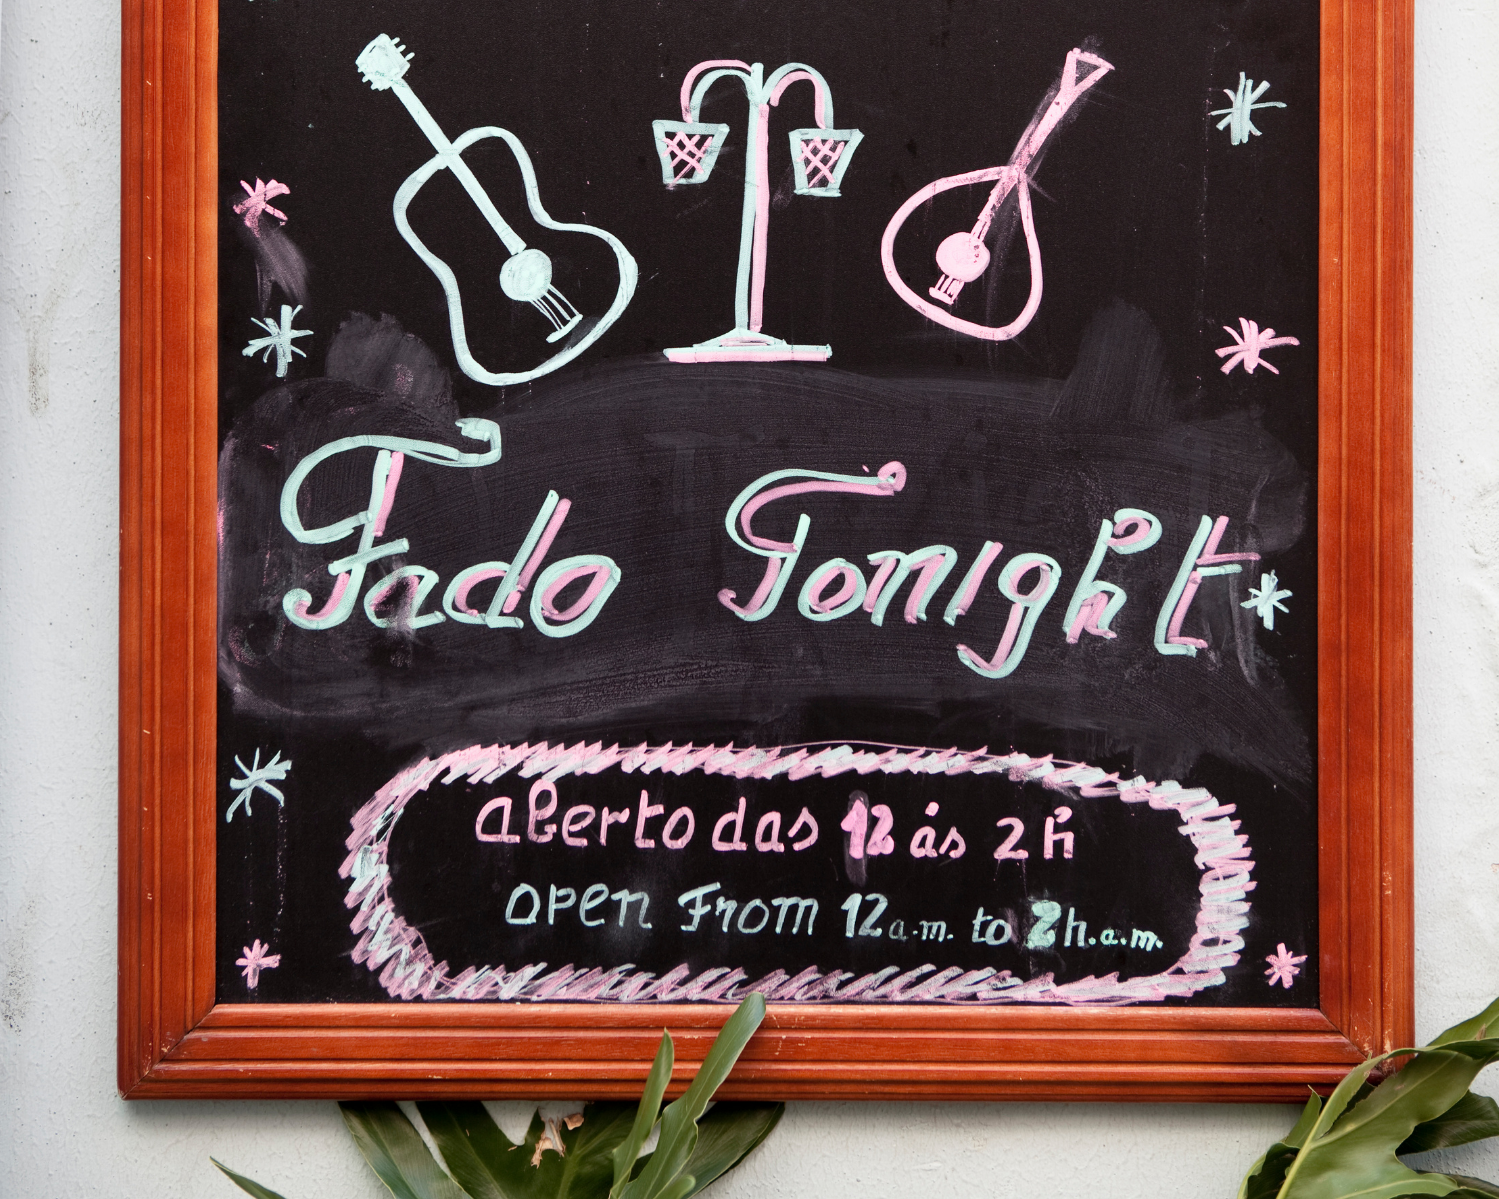 Fado Tonight
aberto das 12 ás 2h
open From 12 a.m. to 2h.a.m.